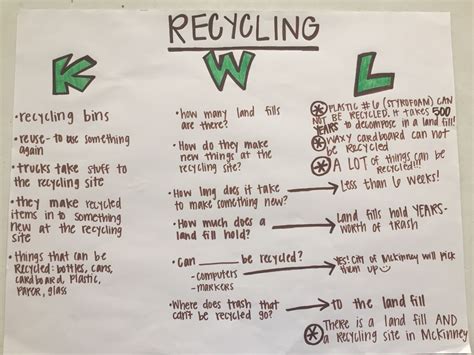 RECYCLING
K W L
•recycling bins
•reuse- to use something
again
•trucks take stuff to
the recycling site
•they make recycled
items in to something
new at the recycling
site
•things that can be
Recycled: bottles, cans,
cardboard, Plastic,
Paper, glass
•how many land fills
are there?
•How do they make
new things at the
recycling site?
•How long does it take
to make something new?
•How much does a
land fill hold?
•Can ______ be recycled?
-computers
-markers
•Where does trash that
can't be recycled go?
PLASTIC #6 (STYROFOAM) CAN
NOT BE RECYCLED. IT TAKES 500
YEARS to decompose in a land fill!
Waxy cardboard can not
be recycled
A LOT of things can be
recycled!!!
Less than 6 weeks!
Land fills hold YEARS-
worth of trash
Yes! City of McKinney will pick
them up
to the land fill
There is a land fill AND
a Recycling site in McKinney